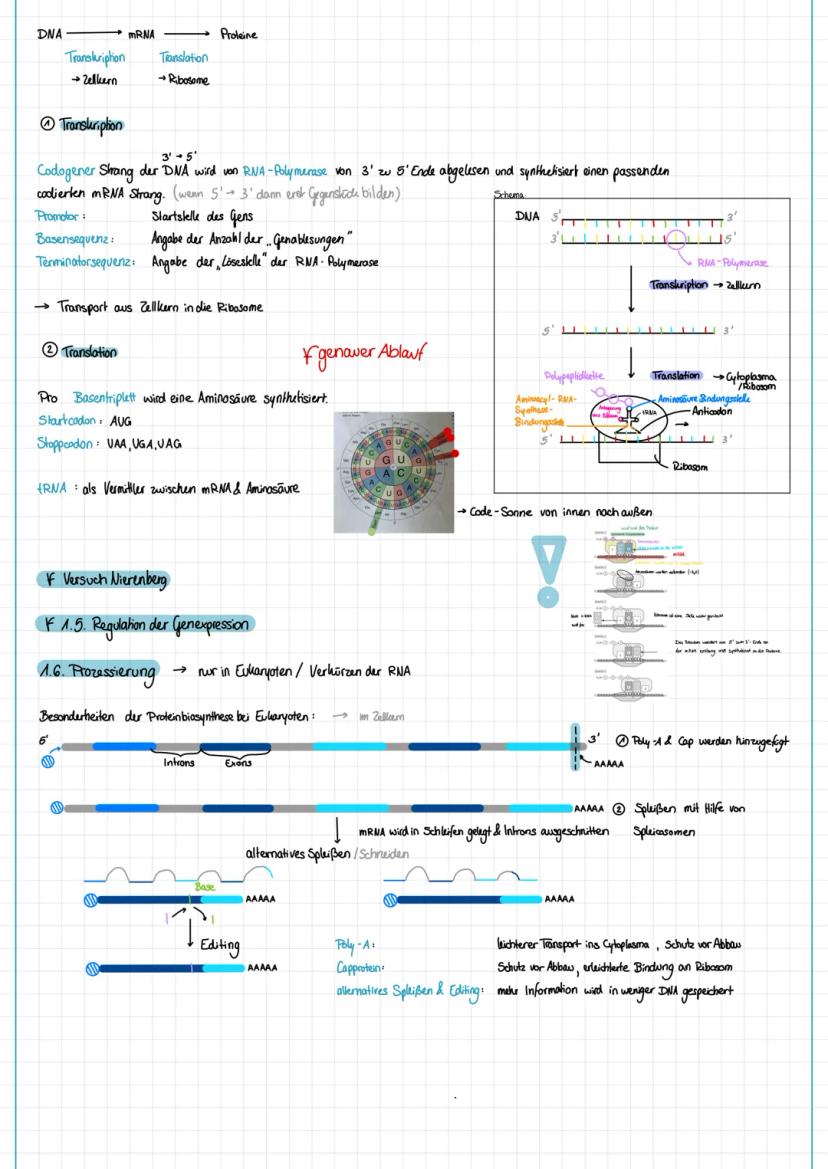 DNA → mRNA → Proteine
Transkription Translation
→ Zellkern → Ribosome
① Transkription
3' → 5'
Codogener Strang der DNA wird von RNA-Polymerase von 3' zu 5' Ende abgelesen und synthetisiert einen passenden
codierten mRNA Strang. (wenn 5' → 3' dann erst Gegenstück bilden)
Promotor: Startstelle des Gens
Basensequenz: Angabe der Anzahl der „Genablesungen"
Terminatorsequenz: Angabe der „Lösestelle" der RNA-Polymerase
→ Transport aus Zellkern in die Ribosome
Schema
DNA 5' 3'
3' 5'
RNA-Polymerase
Transkription → Zellkern
5' 3'
Polypeptidkette
Translation → Cytoplasma
/Ribosom
Aminoacyl-RNA-
Synthase-
Bindungsstelle
Aminosäure Bindungsstelle
tRNA
Anticodon
5' 3'
Ribosom
② Translation
genauer Ablauf
Pro Basentriplett wird eine Aminosäure synthetisiert.
Startcodon: AUG
Stoppcodon: UAA, UGA, UAG
tRNA: als Vermittler zwischen mRNA & Aminosäure
→ Code-Sonne von innen nach außen
Versuch Nierenberg
1.5. Regulation der Genexpression
1.6. Prozessierung → nur in Eukaryoten / Verkürzen der RNA
Besonderheiten der Proteinbiosynthese bei Eukaryoten: → im Zellkern
5' 3' ① Poly-A & Cap werden hinzugefügt
Introns Exons AAAAA
AAAAA ② Spleißen mit Hilfe von
Spleiosomen
mRNA wird in Schleifen gelegt & Introns ausgeschnitten
alternatives Spleißen / Schneiden
Base
AAAAA AAAAA
Editing
AAAAA
Poly-A: leichterer Transport ins Cytoplasma, Schutz vor Abbau
Capprotein: Schutz vor Abbau, erleichterte Bindung an Ribosom
alternatives Spleißen & Editing: mehr Information wird in weniger DNA gespeichert